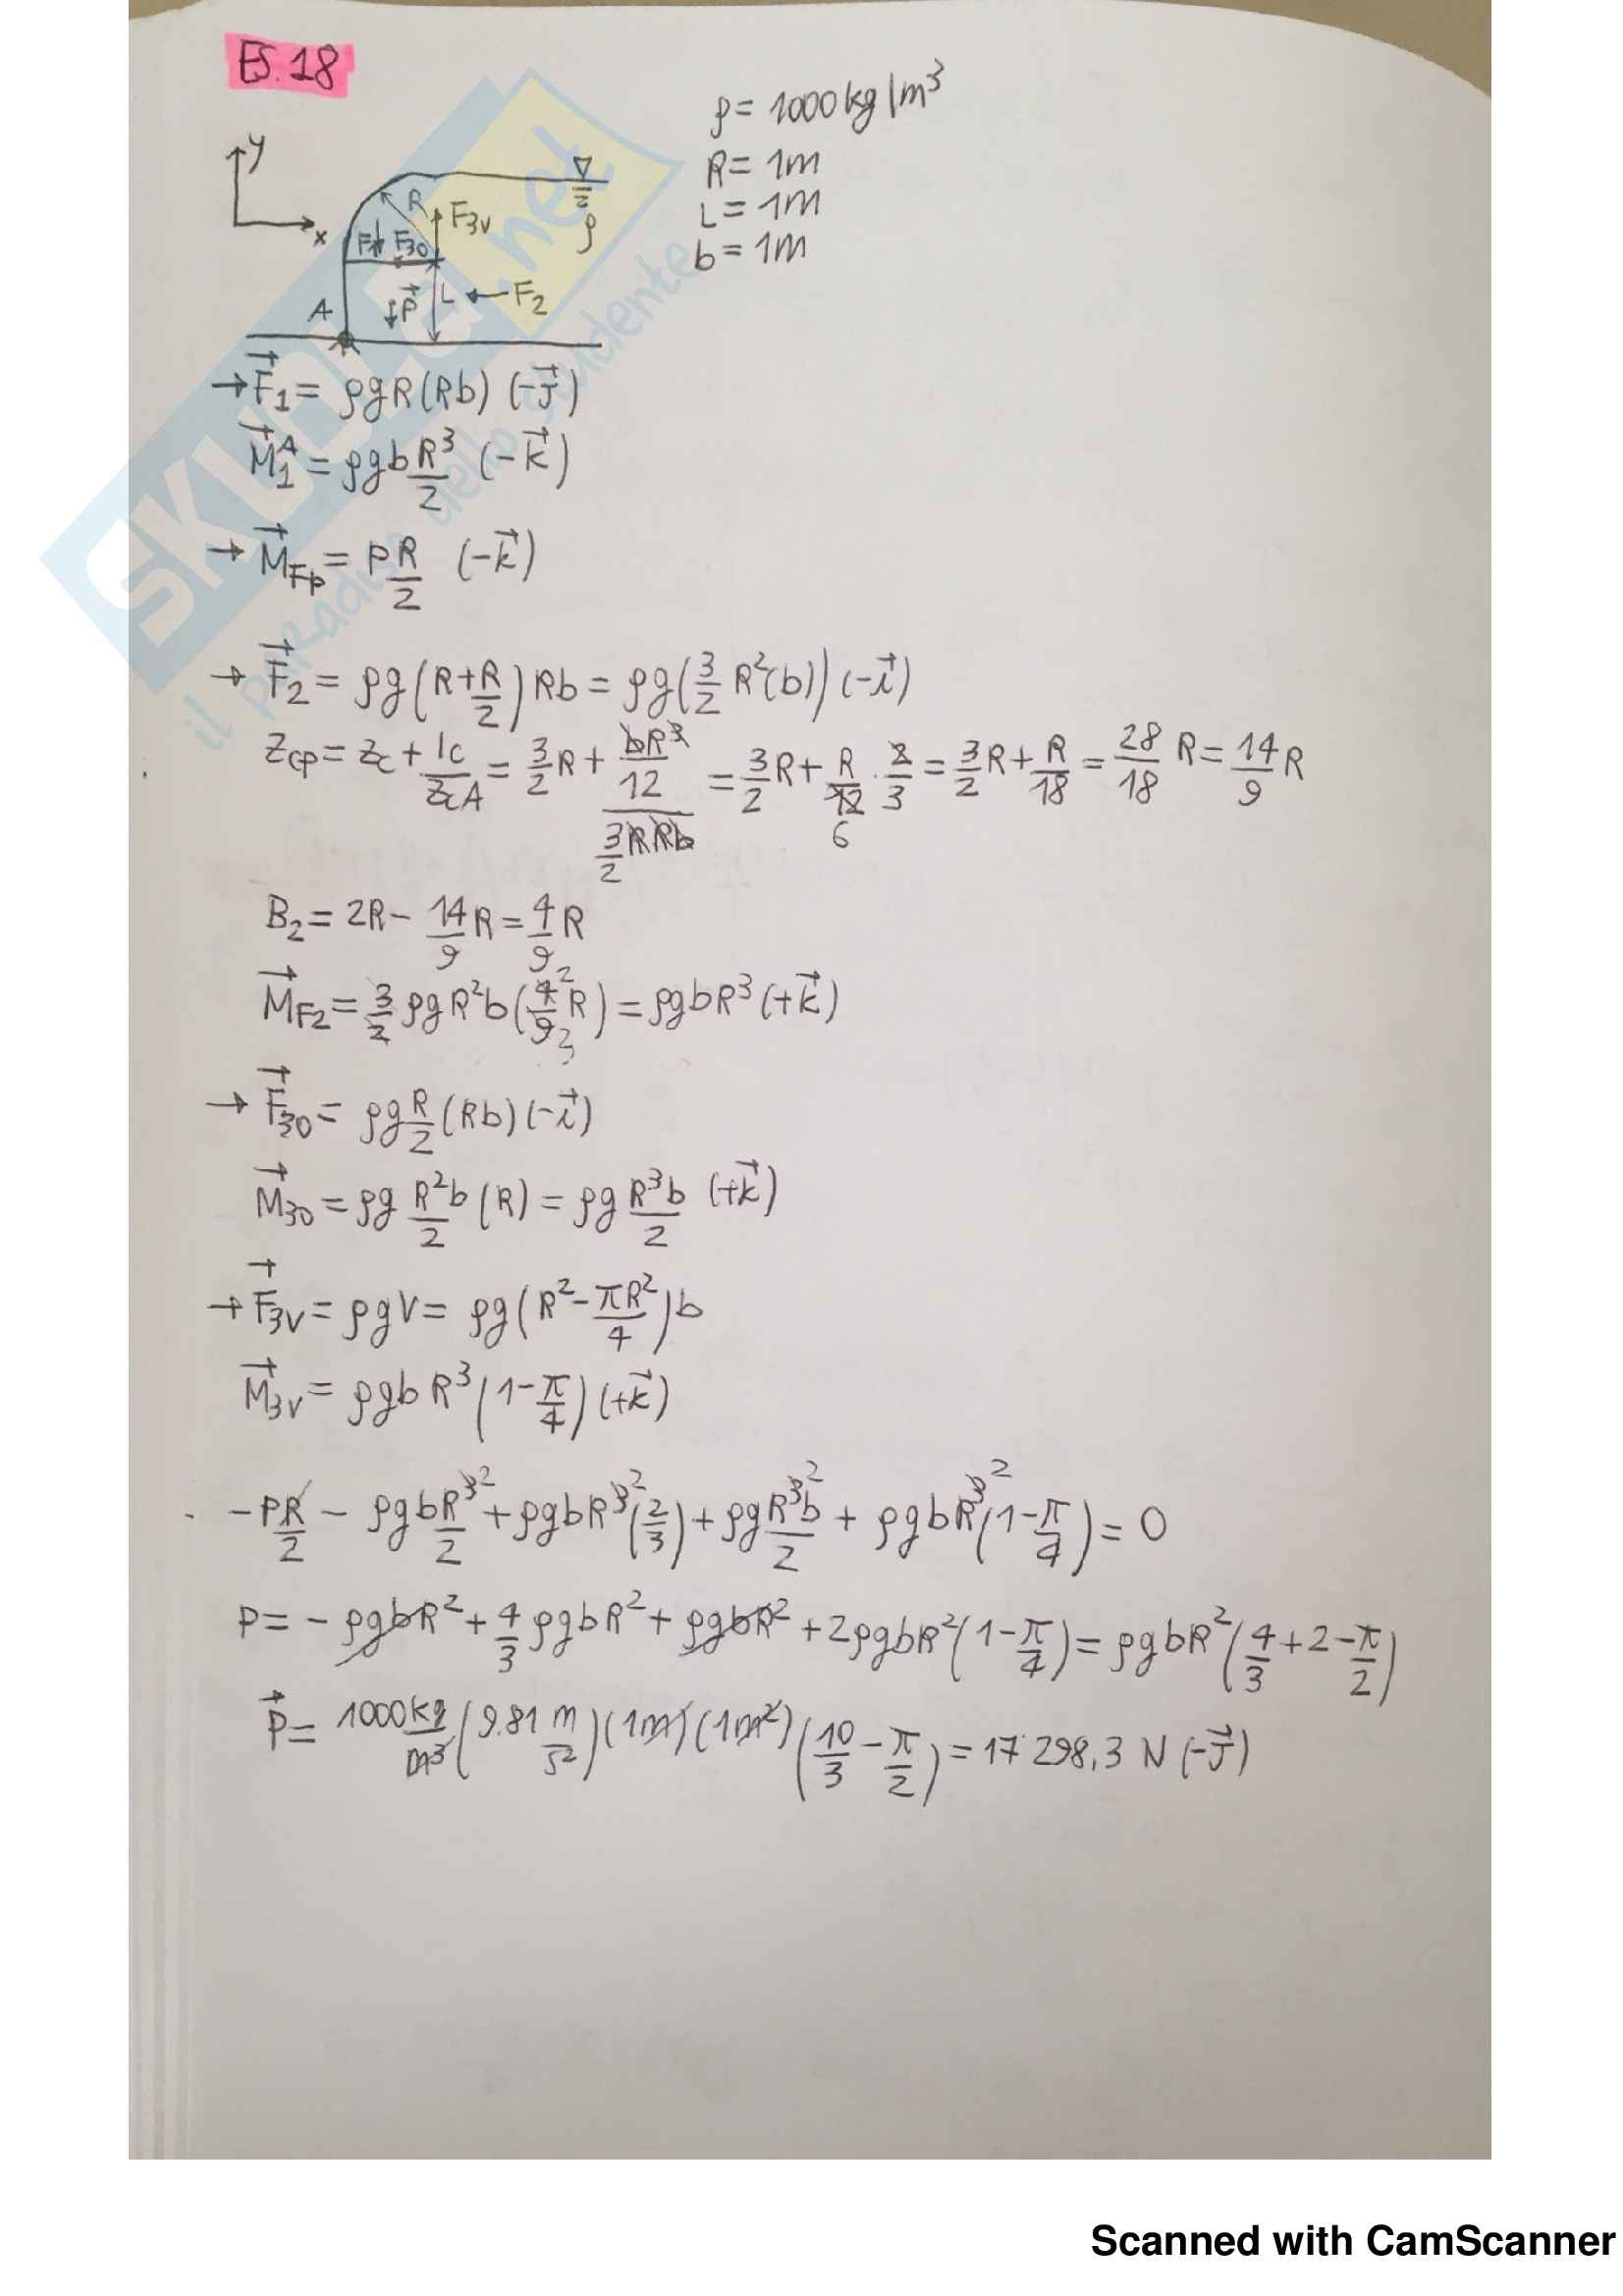 ES. 18
ρ = 1000 kg/m³
R = 1m
L = 1m
b = 1m
y
x
R
F3v
F1
F30
ρ
A
P
L
F2
→ F⃗1 = ρgR(Rb) (-J⃗)
M⃗1ᴬ = ρgb R³/2 (-k⃗)
→ M⃗Fp = P R/2 (-k⃗)
→ F⃗2 = ρg(R + R/2)Rb = ρg(3/2 R²(b)) (-i⃗)
Zcp = Zc + Ic/ZcA = 3/2 R + (bR³/12)/(3/2 RRb) = 3/2 R + R/12 6 · 2/3 = 3/2 R + R/18 = 28/18 R = 14/9 R
B2 = 2R - 14/9 R = 4/9 R
M⃗F2 = 3/2 ρgR²b(4/9 R) 2 3 = ρgbR³ (+k⃗)
→ F⃗30 = ρg R/2 (Rb)(-i⃗)
M⃗30 = ρg R²b/2 (R) = ρg R³b/2 (+k⃗)
→ F⃗3v = ρgV = ρg(R² - πR²/4)b
M⃗3v = ρgbR³(1 - π/4)(+k⃗)
- PR/2 - ρgbR³ ²/2 + ρgbR³ ²(2/3) + ρgR³ ²b/2 + ρgbR³ ²(1 - π/4) = 0
P = - ρgbR² + 4/3 ρgbR² + ρgbR² + 2ρgbR²(1 - π/4) = ρgbR²(4/3 + 2 - π/2)
P⃗ = 1000 kg/m³ (9.81 m/s²)(1m)(1m²)(10/3 - π/2) = 17 298,3 N (-J⃗)
SKUOLA.net
il paradiso dello studente
Scanned with CamScanner